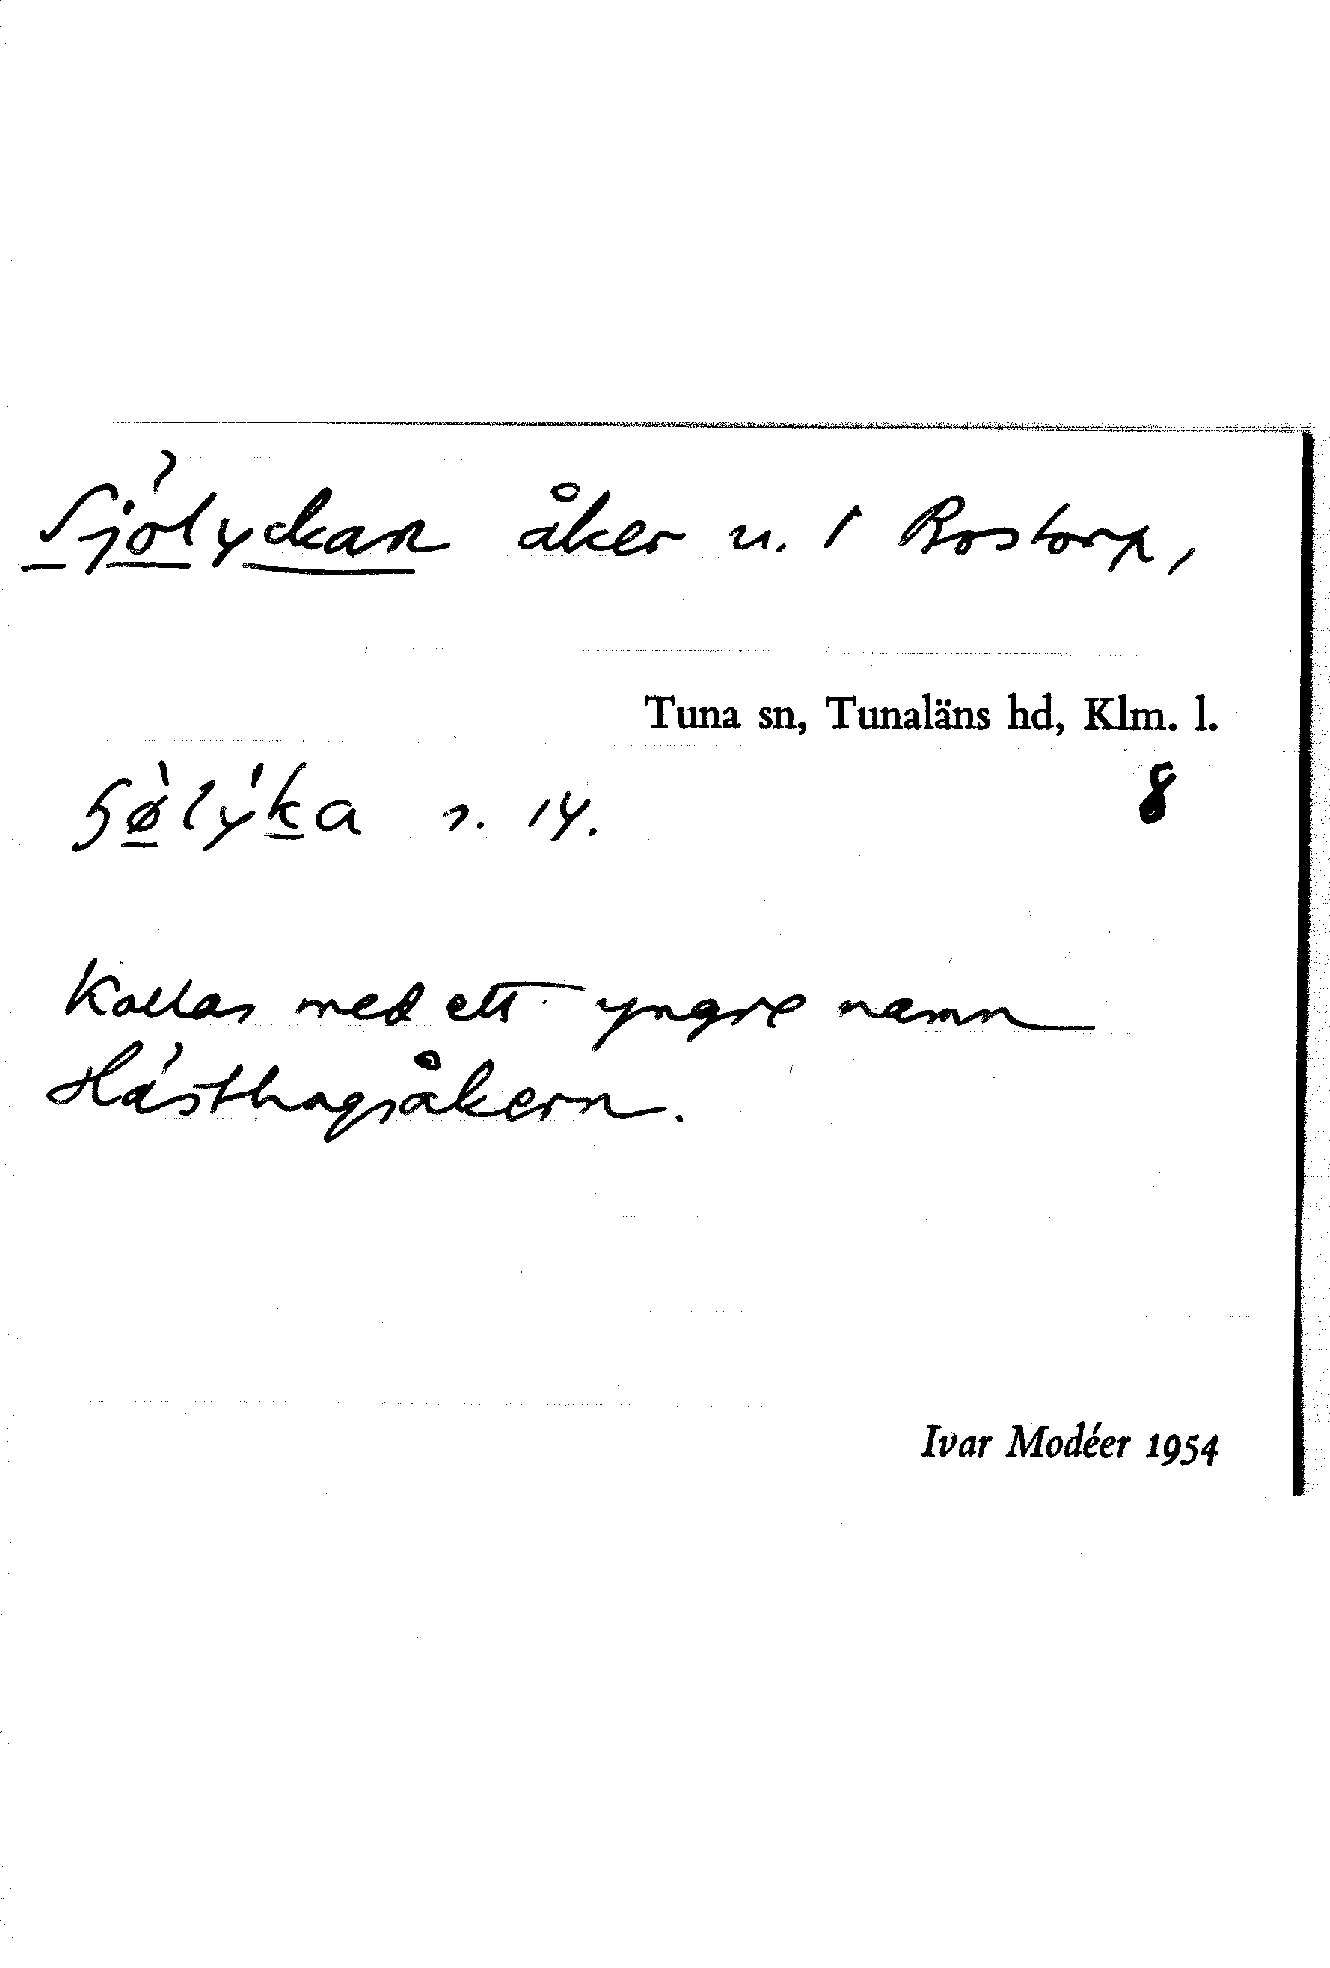 Sjölyckan åker u. 1 Rostorp,
Tuna sn, Tunaläns hd, Klm. l.
8
s. 14.
Kallas med ett yngre namn
Hästhagsåkern.
Ivar Modéer 1954